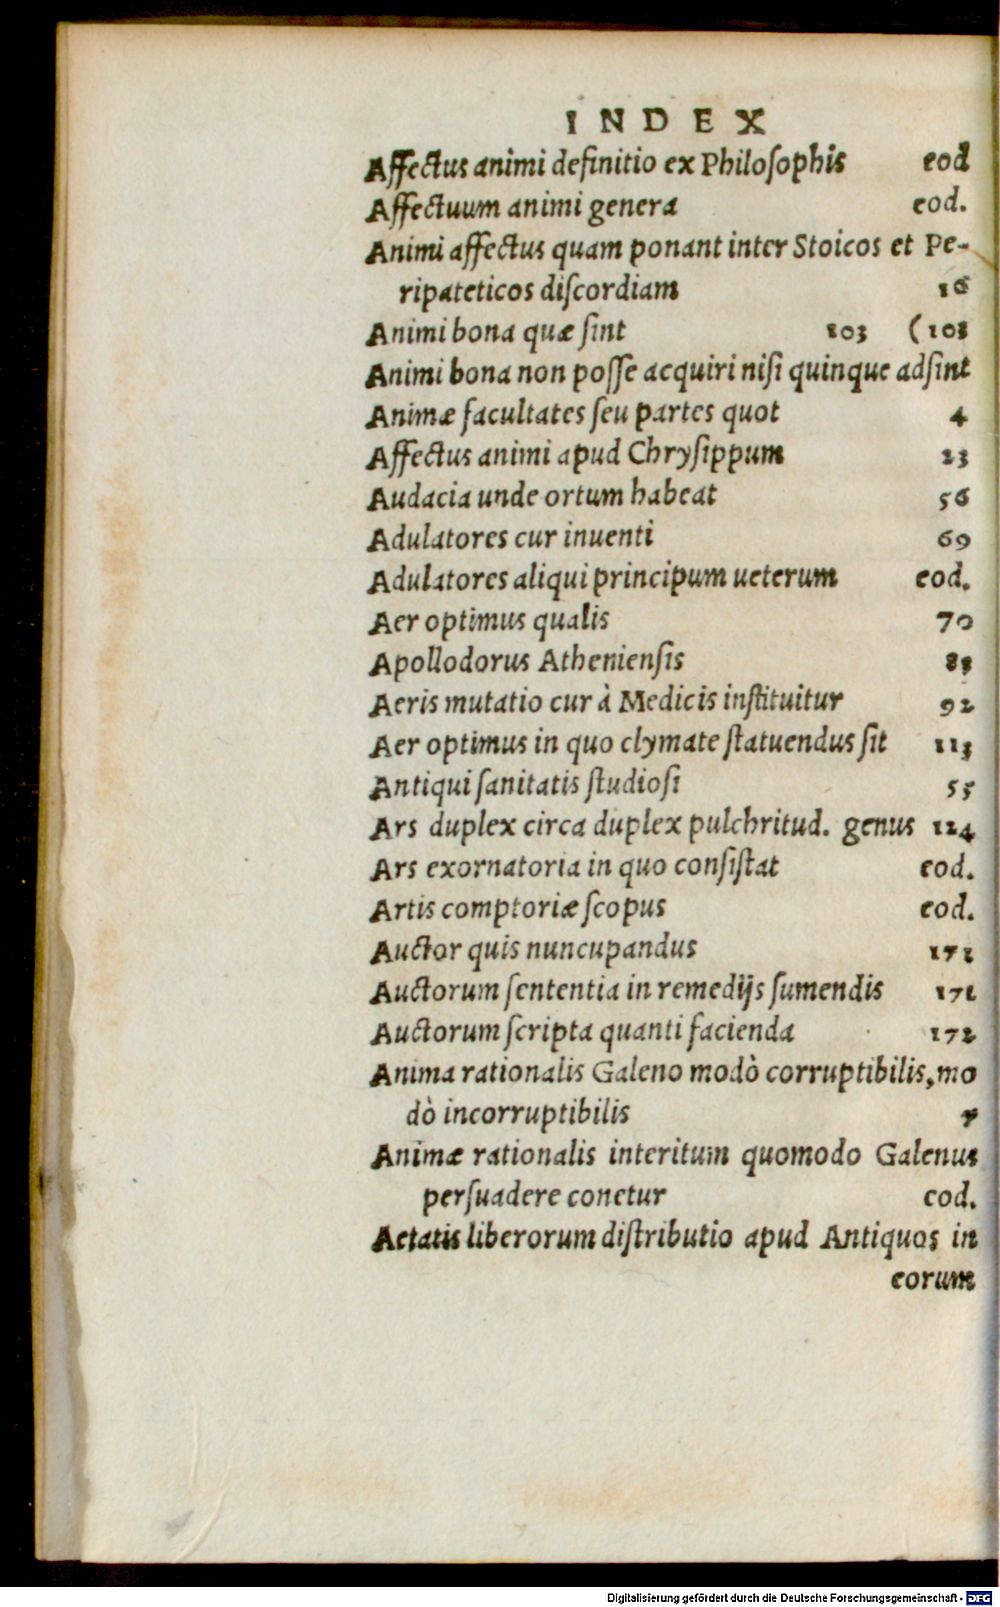 INDEX
Affectus animi definitio ex Philosophis eod
Affectuum animi genera eod.
Animi affectus quam ponant inter Stoicos et Pe-
ripateticos discordiam 16
Animi bona quæ sint 103 (108
Animi bona non posse acquiri nisi quinque adsint
Animæ facultates seu partes quot 4
Affectus animi apud Chrysippum 23
Audacia unde ortum habeat 56
Adulatores cur inuenti 69
Adulatores aliqui principum ueterum eod.
Aer optimus qualis 70
Apollodorus Atheniensis
Aeris mutatio cur à Medicis instituitur 92
Aer optimus in quo clymate statuendus sit 113
Antiqui sanitatis studiosi 55
Ars duplex circa duplex pulchritud. genus 124
Ars exornatoria in quo consistat eod.
Artis comptoriæ scopus eod.
Auctor quis nuncupandus 171
Auctorum sententia in remedijs sumendis 171
Auctorum scripta quanti facienda 172
Anima rationalis Galeno modò corruptibilis, mo
dò incorruptibilis
Animæ rationalis interitum quomodo Galenus
persuadere conetur eod.
Aetatis liberorum distributio apud Antiquos in
eorum
Digitalisierung gefördert durch die Deutsche Forschungsgemeinschaft - DFG